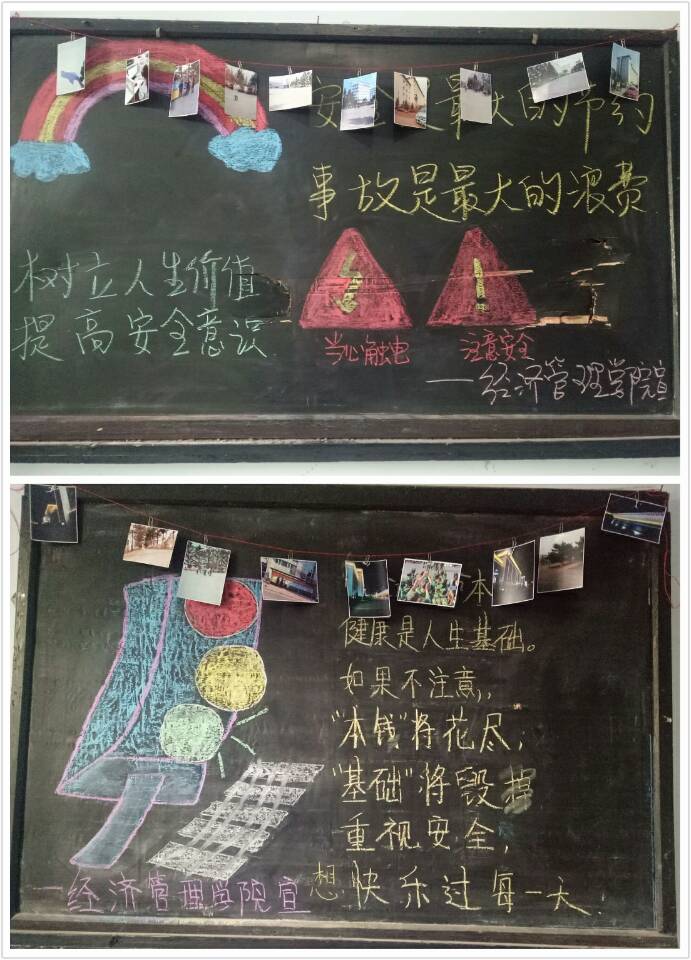 安全是最大的节约
事故是最大的浪费
树立人生价值
提高安全意识
当心触电
注意安全
—经济管理学院宣
本
健康是人生基础。
如果不注意，
“本钱”将花尽；
“基础”将毁掉
重视安全，
想快乐过每一天！
—经济管理学院宣